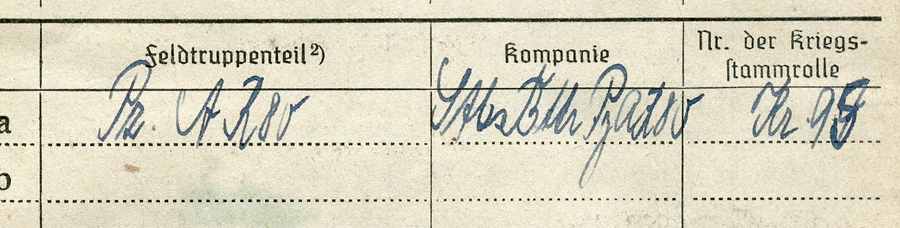 Feldtruppenteil²) Kompanie Nr. der Kriegs-
stammrolle
a Pz. A R 80 StbsBttr PzAR 80 Kr 98
b